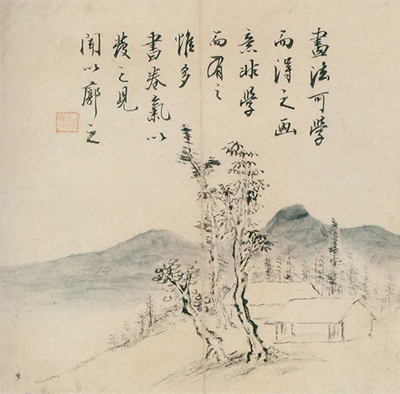 畫法可學
而得之画
意非學
而有之
惟多
書卷氣以
發之見
聞以廓之